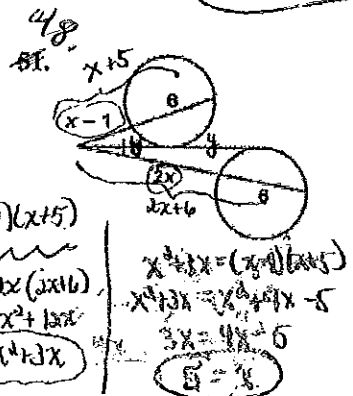 48
x+5
x - 1
6
y
2x
2x+6
6
)(x+5)
2x(2x+6)
x²+12x
x²+3x
x²+3x=(x-1)(x+5)
x²+3x=x²+4x-5
3x=4x-5
5=x